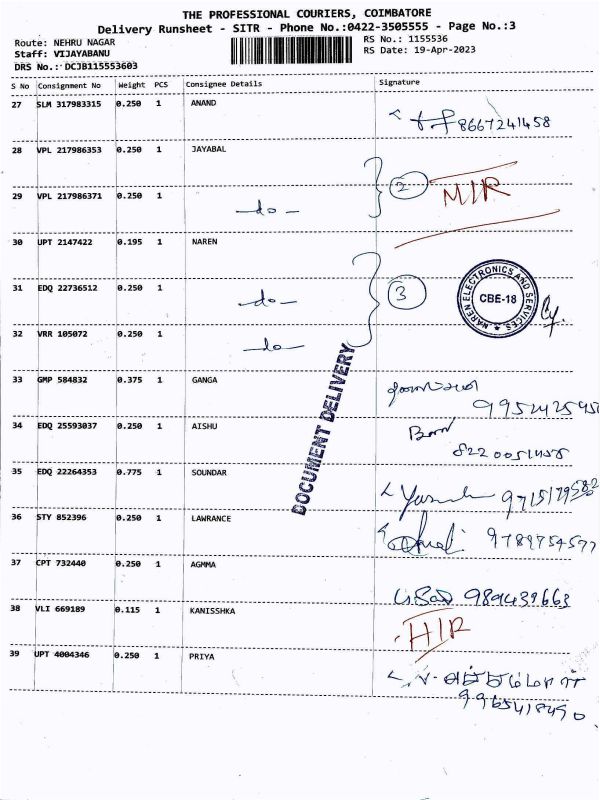 THE PROFESSIONAL COURIERS, COIMBATORE
Delivery Runsheet - SITR - Phone No.:0422-3505555 - Page No.:3
Route: NEHRU NAGAR
Staff: VIJAYABANU
DRS No.: DCJB115553603
RS No.: 1155536
RS Date: 19-Apr-2023
S No Consignment No Weight PCS Consignee Details Signature
27 SLM 317983315 0.250 1 ANAND
8667241458
28 VPL 217986353 0.250 1 JAYABAL
2 NIR
29 VPL 217986371 0.250 1 -do-
30 UPT 2147422 0.195 1 NAREN
31 EDQ 22736512 0.250 1 -do- 3
NAREN ELECTRONICS AND SERVICES
CBE-18
32 VRR 105072 0.250 1 -do-
DOCUMENT DELIVERY
33 GMP 584832 0.375 1 GANGA
34 EDQ 25593037 0.250 1 AISHU
8220051458
35 EDQ 22264353 0.775 1 SOUNDAR
9715179582
36 STY 852396 0.250 1 LAWRANCE
9789754577
37 CPT 732440 0.250 1 AGMMA
989439663
38 VLI 669189 0.115 1 KANISSHKA
HIR
39 UPT 4004346 0.250 1 PRIYA
9965418490